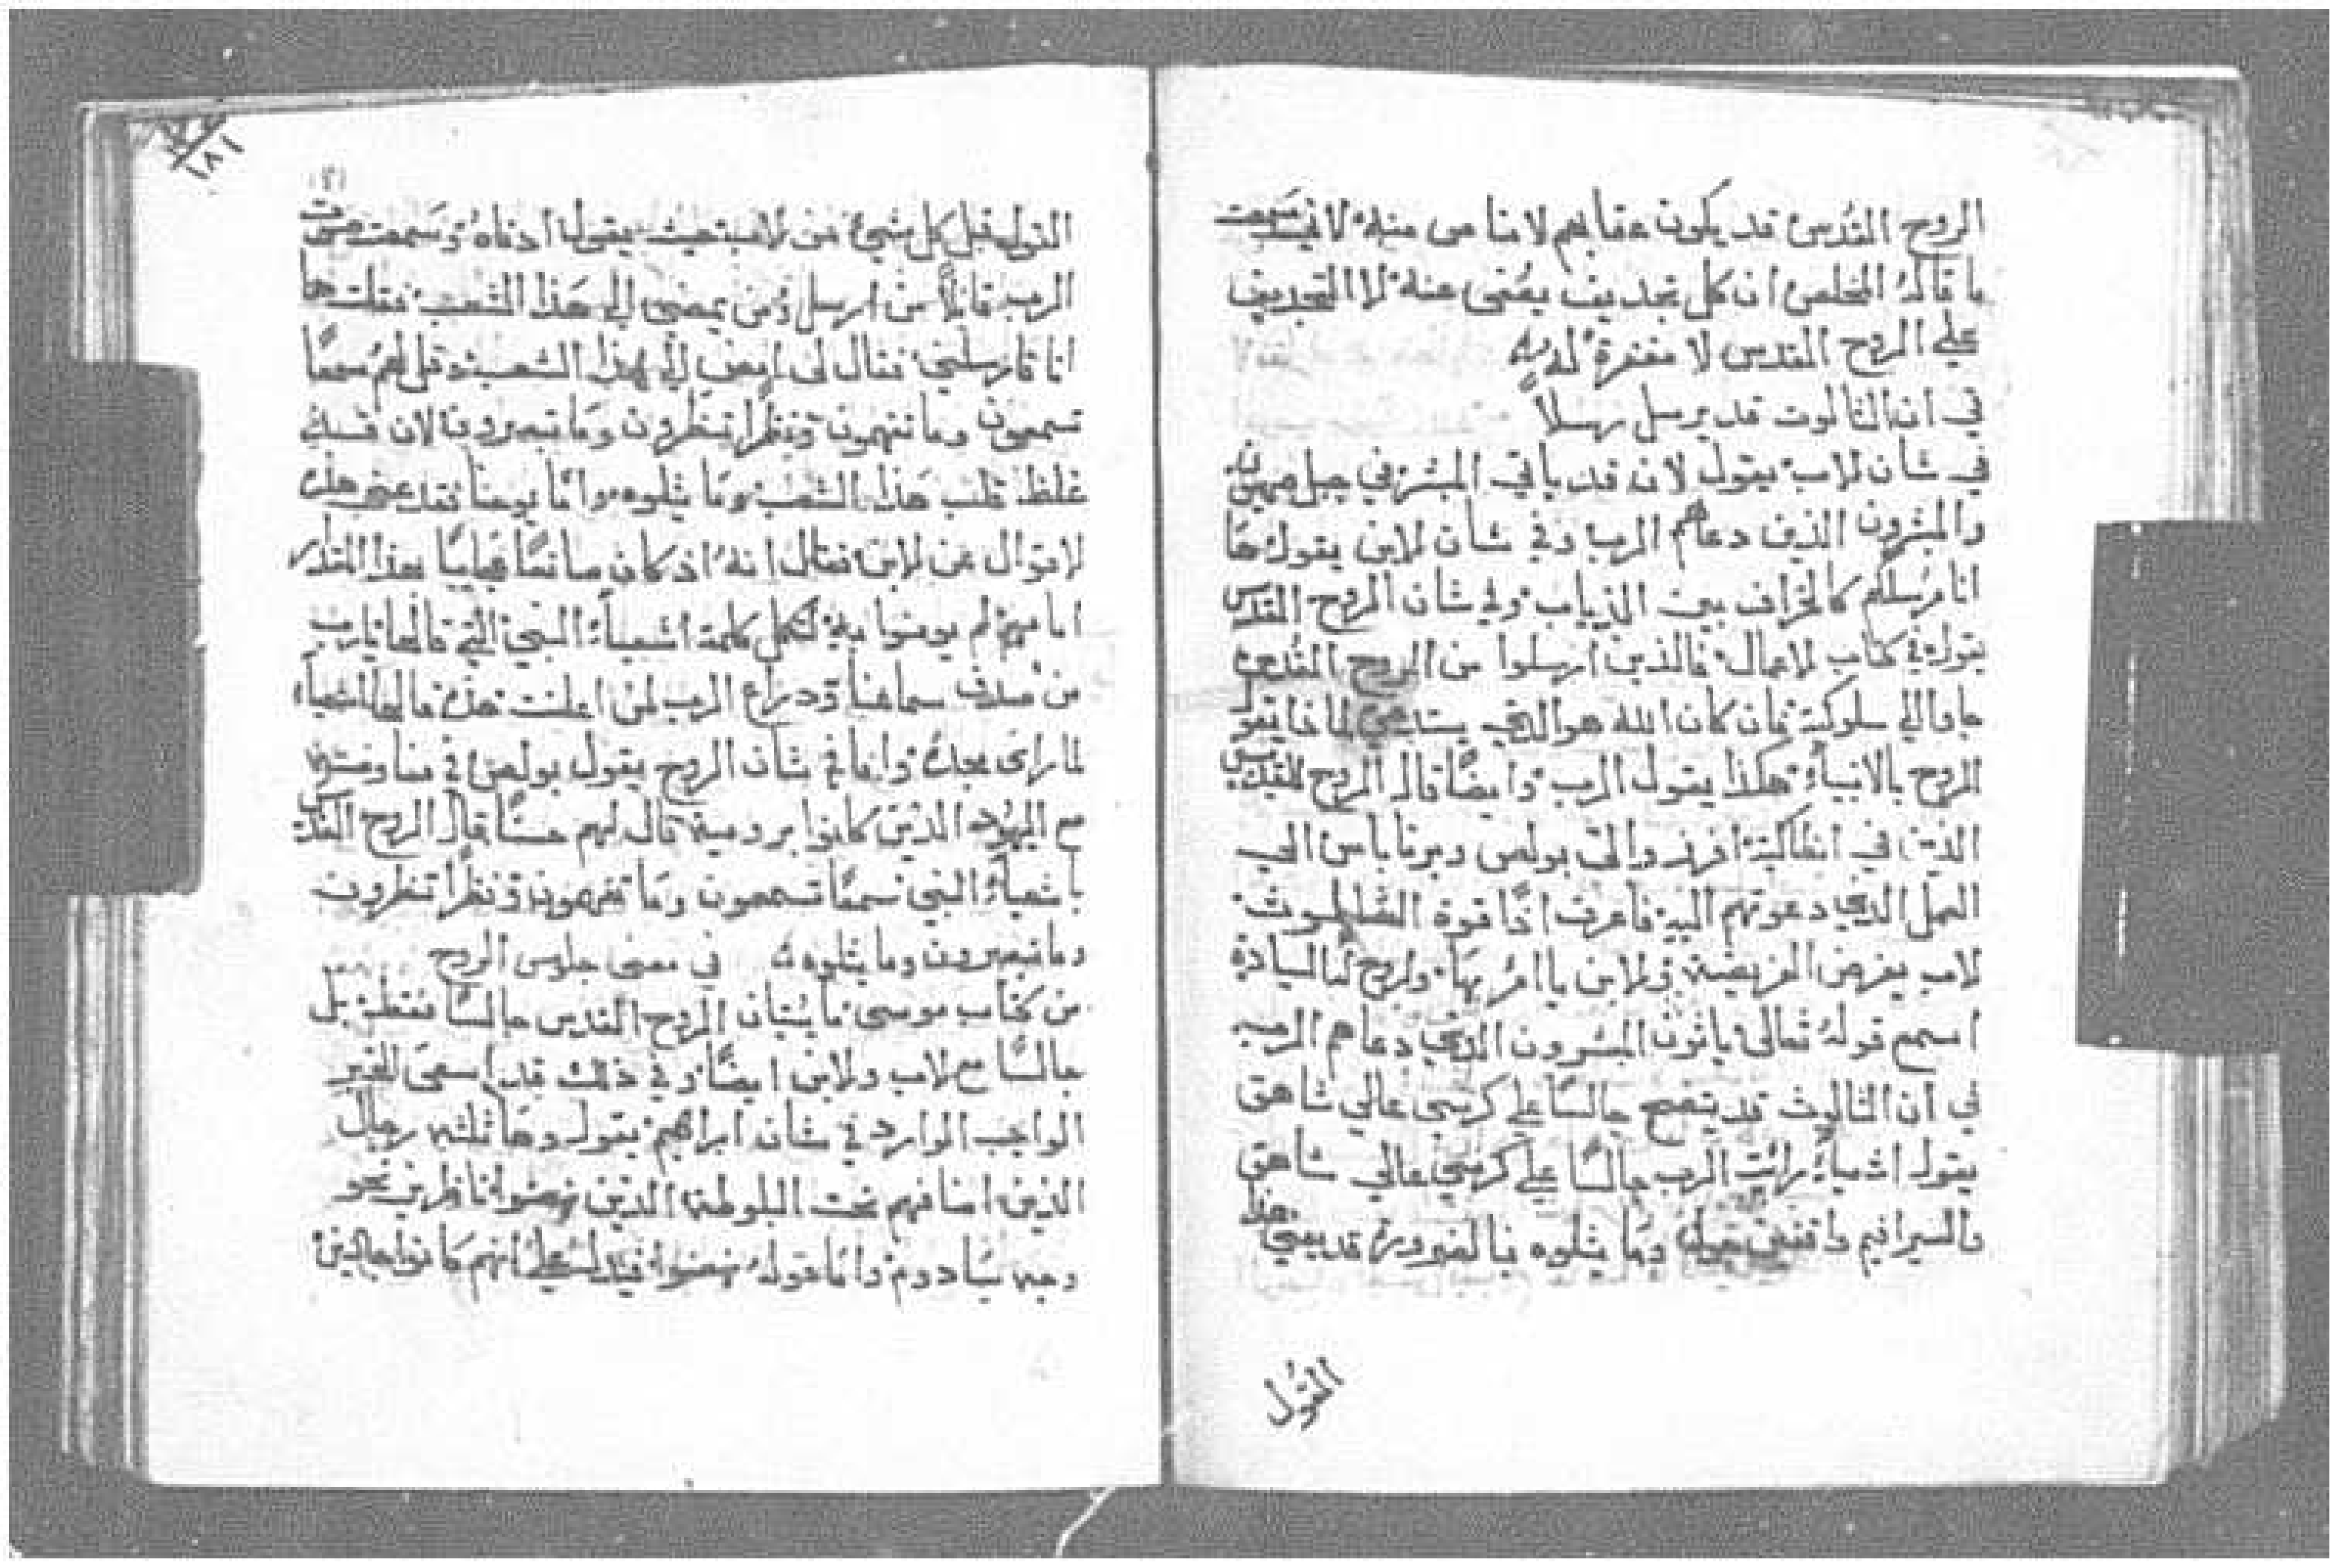 الروح القُدس قد يكون عقابهم لامناص منهُ لاني سَمعت
ما قالهُ المخلص ان كل تجديف يعُفى عنه الا التجديف
على الروح القدس لا مغفرة لهُ
في ان الثالوت قد يرسل رسلاً
في شان الاب يقول لان قد ياتي المبشر في جبل صهيون
والمبشرون الذين دعاهم الرب وفي شان الابن يقول ها
انا مرسلكم كالخراف بين الذياب وفي شان الروح القدس
يقول في كتاب الاعمال فالذين ارسلوا من الروح القُدس
جاوا الي سلوكية فان كان الله هو الذي يستدعي
الروح بالانبياء هكذا يقول الرب وايضًا قال الروح القدس
الذين في انطاكية افرزوا الىّ بولص وبرنا باس الي
العمل الذي دعوتهم اليه فاعرف اخًا قوة الثالوث
الاب يفرض الفريضة والابن يا امر بها والروح لها السيادة
اسمع قولهُ تعالى ياتون المبشرون الذي دعاهم الرب
في ان الثالوث قد يتضح جالسًا علي كرسي عالي شاهق
يقول اشعياءُ رائت الرب جالسًا علي كرسي عالي شاهق
والسيرافيم واقفين حوله وما يتلوه فبالضرورة قد يعني هذا
القول
١٨١
القول قبل كل شيء عن الاب حيث يقول اذناه وسَمعت صوت
الرب قائلاً من ارسل ومن يمضي الى هَذا الشعب فقلت ها
انا فارسلني فقال لى امض الي هذا الشعب وقل لهم سمعًا
تسمعون وما تفهمون ونظرًا تنظرون ومَا تبصرون لان
غلظ قلب هَذا الشعب ومَا يتلوه وامّا يوحنا فقد عني هذه
الاقوال عن الابن فقال انهُ اذ كان صانعًا عجايبًا بهذا المقدار
امامهم لم يومنوا به لتكمل كلمة اشعياءُ النبي التي قالها يارب
من صدق سماعنا وذراع الرب لمن اعلنت هذه قالها اشعياء
لما راى مجدهُ وايضا في شان الروح يقول بولص في
مع اليهود الذين كانوا برومية قال لهم حسنًا قال الروح القدس
باشعياءُ النبي سمعًا تسمعون ومَا تفهمون ونظرًا تنظرون
وما تبصرون وما يتلوه في معنى جلوس الروح
من كتاب موسى ما يتبان الروح القدس جالسًا فقط بل
جالسًا مع الاب والابن ايضًا وفي ذلك قد اسمىَ للخبر
الواجب الوارد في شان ابراهيم يقول وهَا ثلثه رجال
الذين اضافهم تحت البلوطه الذين نهضوا ناظرين نحو
وجه سَادوم وامَّا قوله نهضوا فيدلُ علي انهم كانوا جالسين